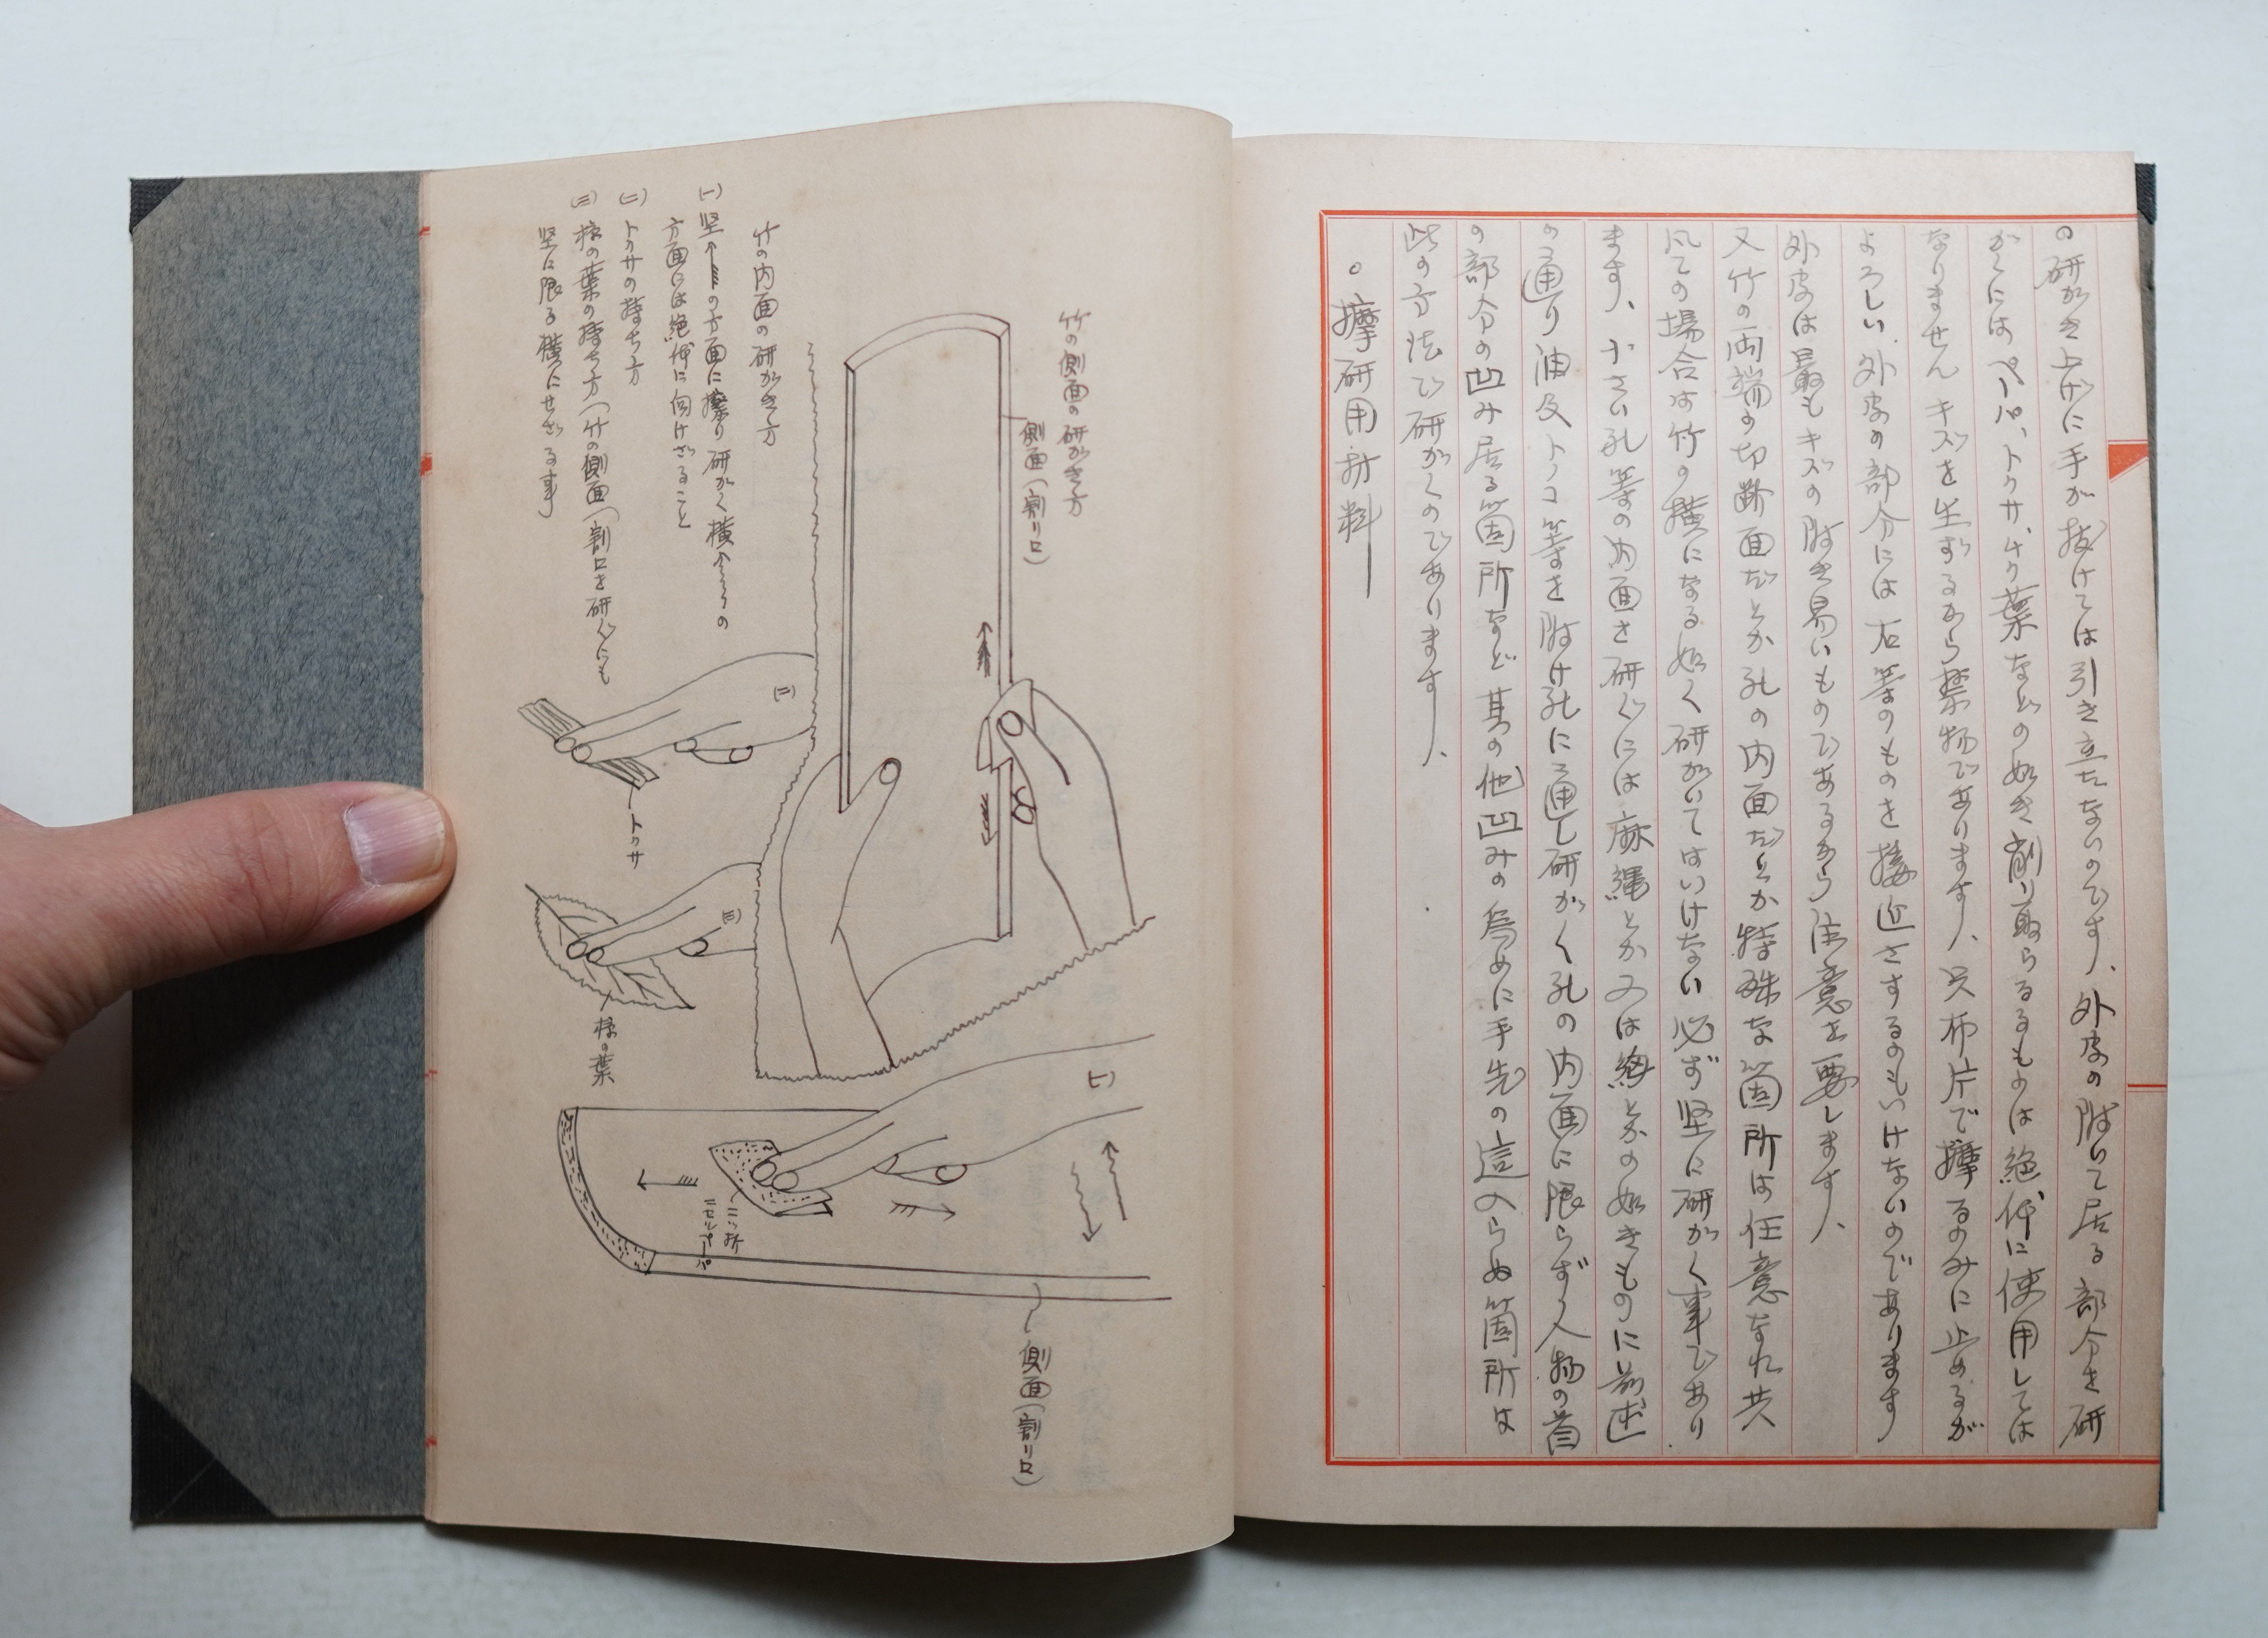 の研がき上げに手が抜けては引き立たないのです、外皮の附いて居る部分を研
がくにはペーパ、トクサ、ムク葉などの如き削り取らるるものは絶体に使用しては
なりません キズを生ずるから禁物であります、只布片で擦るのみに止めるが
よろしい、外皮の部分には石等のものを接近さするのもいけないのであります
外皮は最もキズの附き易いものであるから注意を要します、
又竹の両端の切断面だとか孔の内面だとか特殊な箇所は任意なれ共
凡ての場合は竹の横になる如く研がいてはいけない必ず堅に研がく事であり
ます、小さい孔等の内面を研ぐには麻縄とか又は とかの如きものに前述
の通り油及トノコ等を附け孔に通し研がく孔の内面に限らず人物の首
の部分の凹み居る箇所など其の他凹みの為めに手先の這入らぬ箇所は
此の方法で研がくのであります、
○摩研用材料
竹の側面の研がき方
側面(割り口)
竹の内面の研がき方
(一)堅↑の方面に擦り研がく横↑の
方面には絶体に向けざること
(二)トクサの持ち方
(三)椋の葉の持ち方(竹の側面(割口を研ぐにも
堅に限る横にせざる事)
(二)
トクサ
(三)
椋の葉
(一)
二ツ折
ニセルペーパ
側面(割り口)